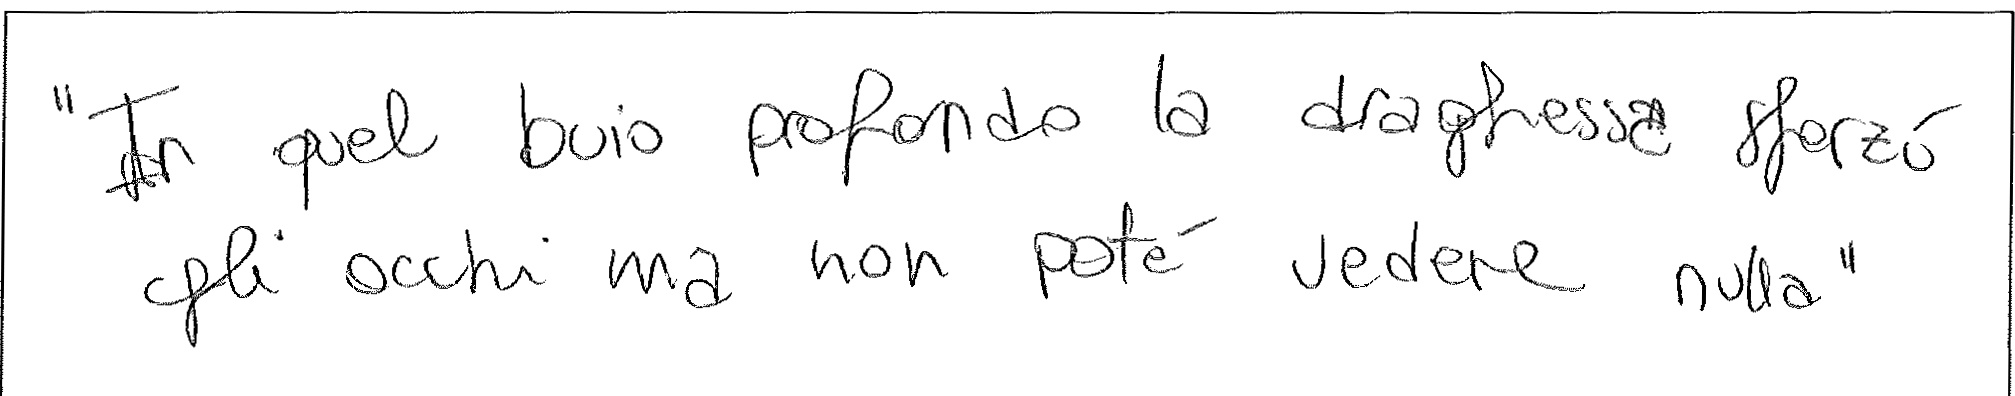 "In quel buio profondo la draghessa sferzó
gli occhi ma non poté vedere nulla"